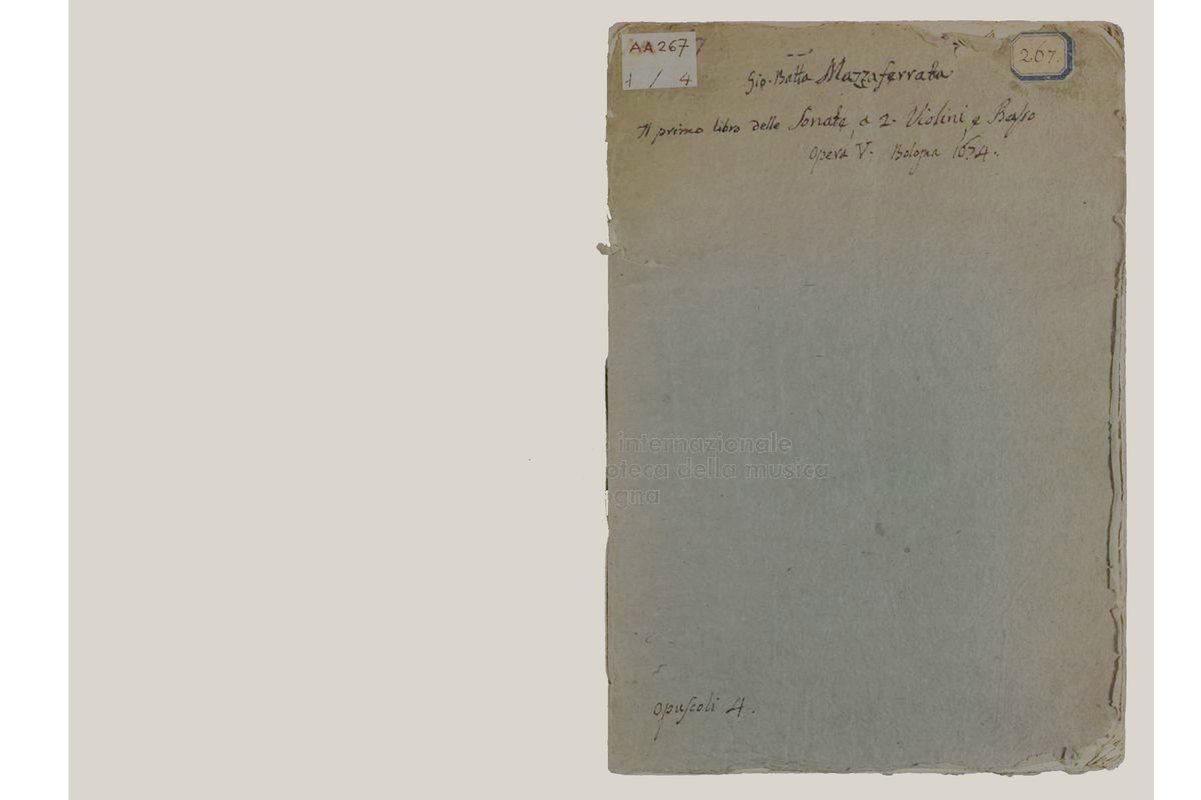 AA267
1 / 4
267.
Gio. Batta Mazzaferrata
Il primo libro delle Sonate, a 2. Violini, e Basso
Opera V. Bologna 1674.
internazionale
oteca della musica
gna
opuscoli 4.